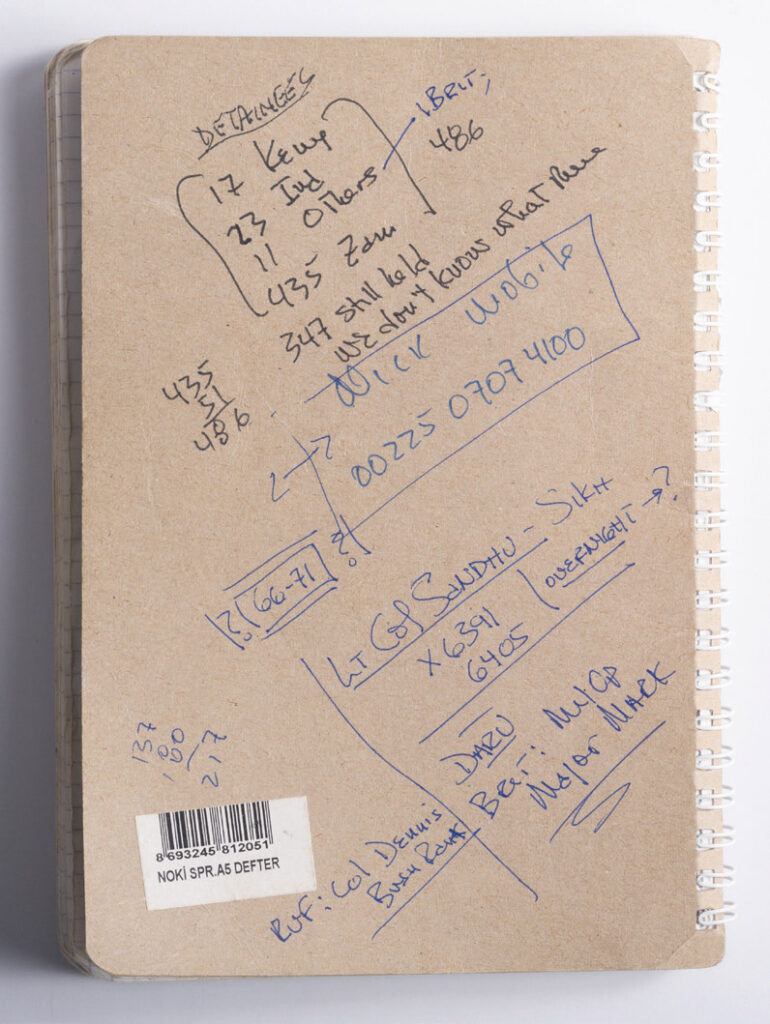 DETAINEES
17 Keny
23 Ind
11 Others
435 Zam
1 BRIT;
486
347 still held
We don't know what there
435
51
486
NICK Mobile
00225 0707 4100
?
66-71
?!
?!
Lt Col SANDHU - SIKH
x 6391
6405
OVERNIGHT → ?
DARU
BRIT: M/Gp
Major MARK
137
217
8 693245 812051
NOKİ SPR.A5 DEFTER
RUF: Col Dennis